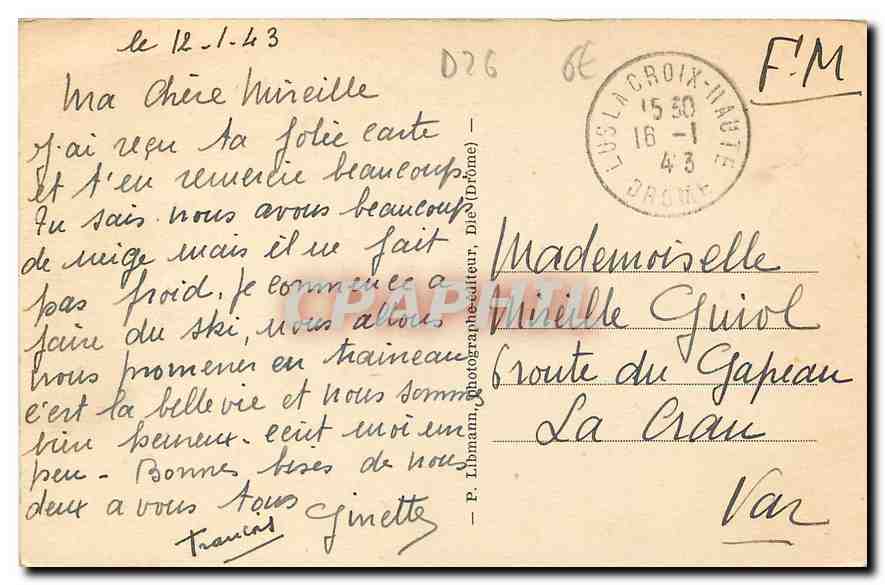 le 12-1-43
Ma Chère Mireille
J'ai reçu ta jolie carte
et t'en remercie beaucoup.
Tu sais nous avons beaucoup
de neige mais il ne fait
pas froid. Je commence a
faire du ski, nous allons
nous promener en traineau
c'est la belle vie et nous somme
bien heureux. ecrit moi un
peu - Bonnes bises de nous
deux a vous tous
François Ginette
— P. Libmann, photographe-éditeur, Die (Drôme) —
D26
6E
F.M
LUS LA CROIX-HAUTE
15 30
16 -1
43
DROME
Mademoiselle
Mireille Guiol
6 route du Gapeau
La Crau
Var
CPAPHIL